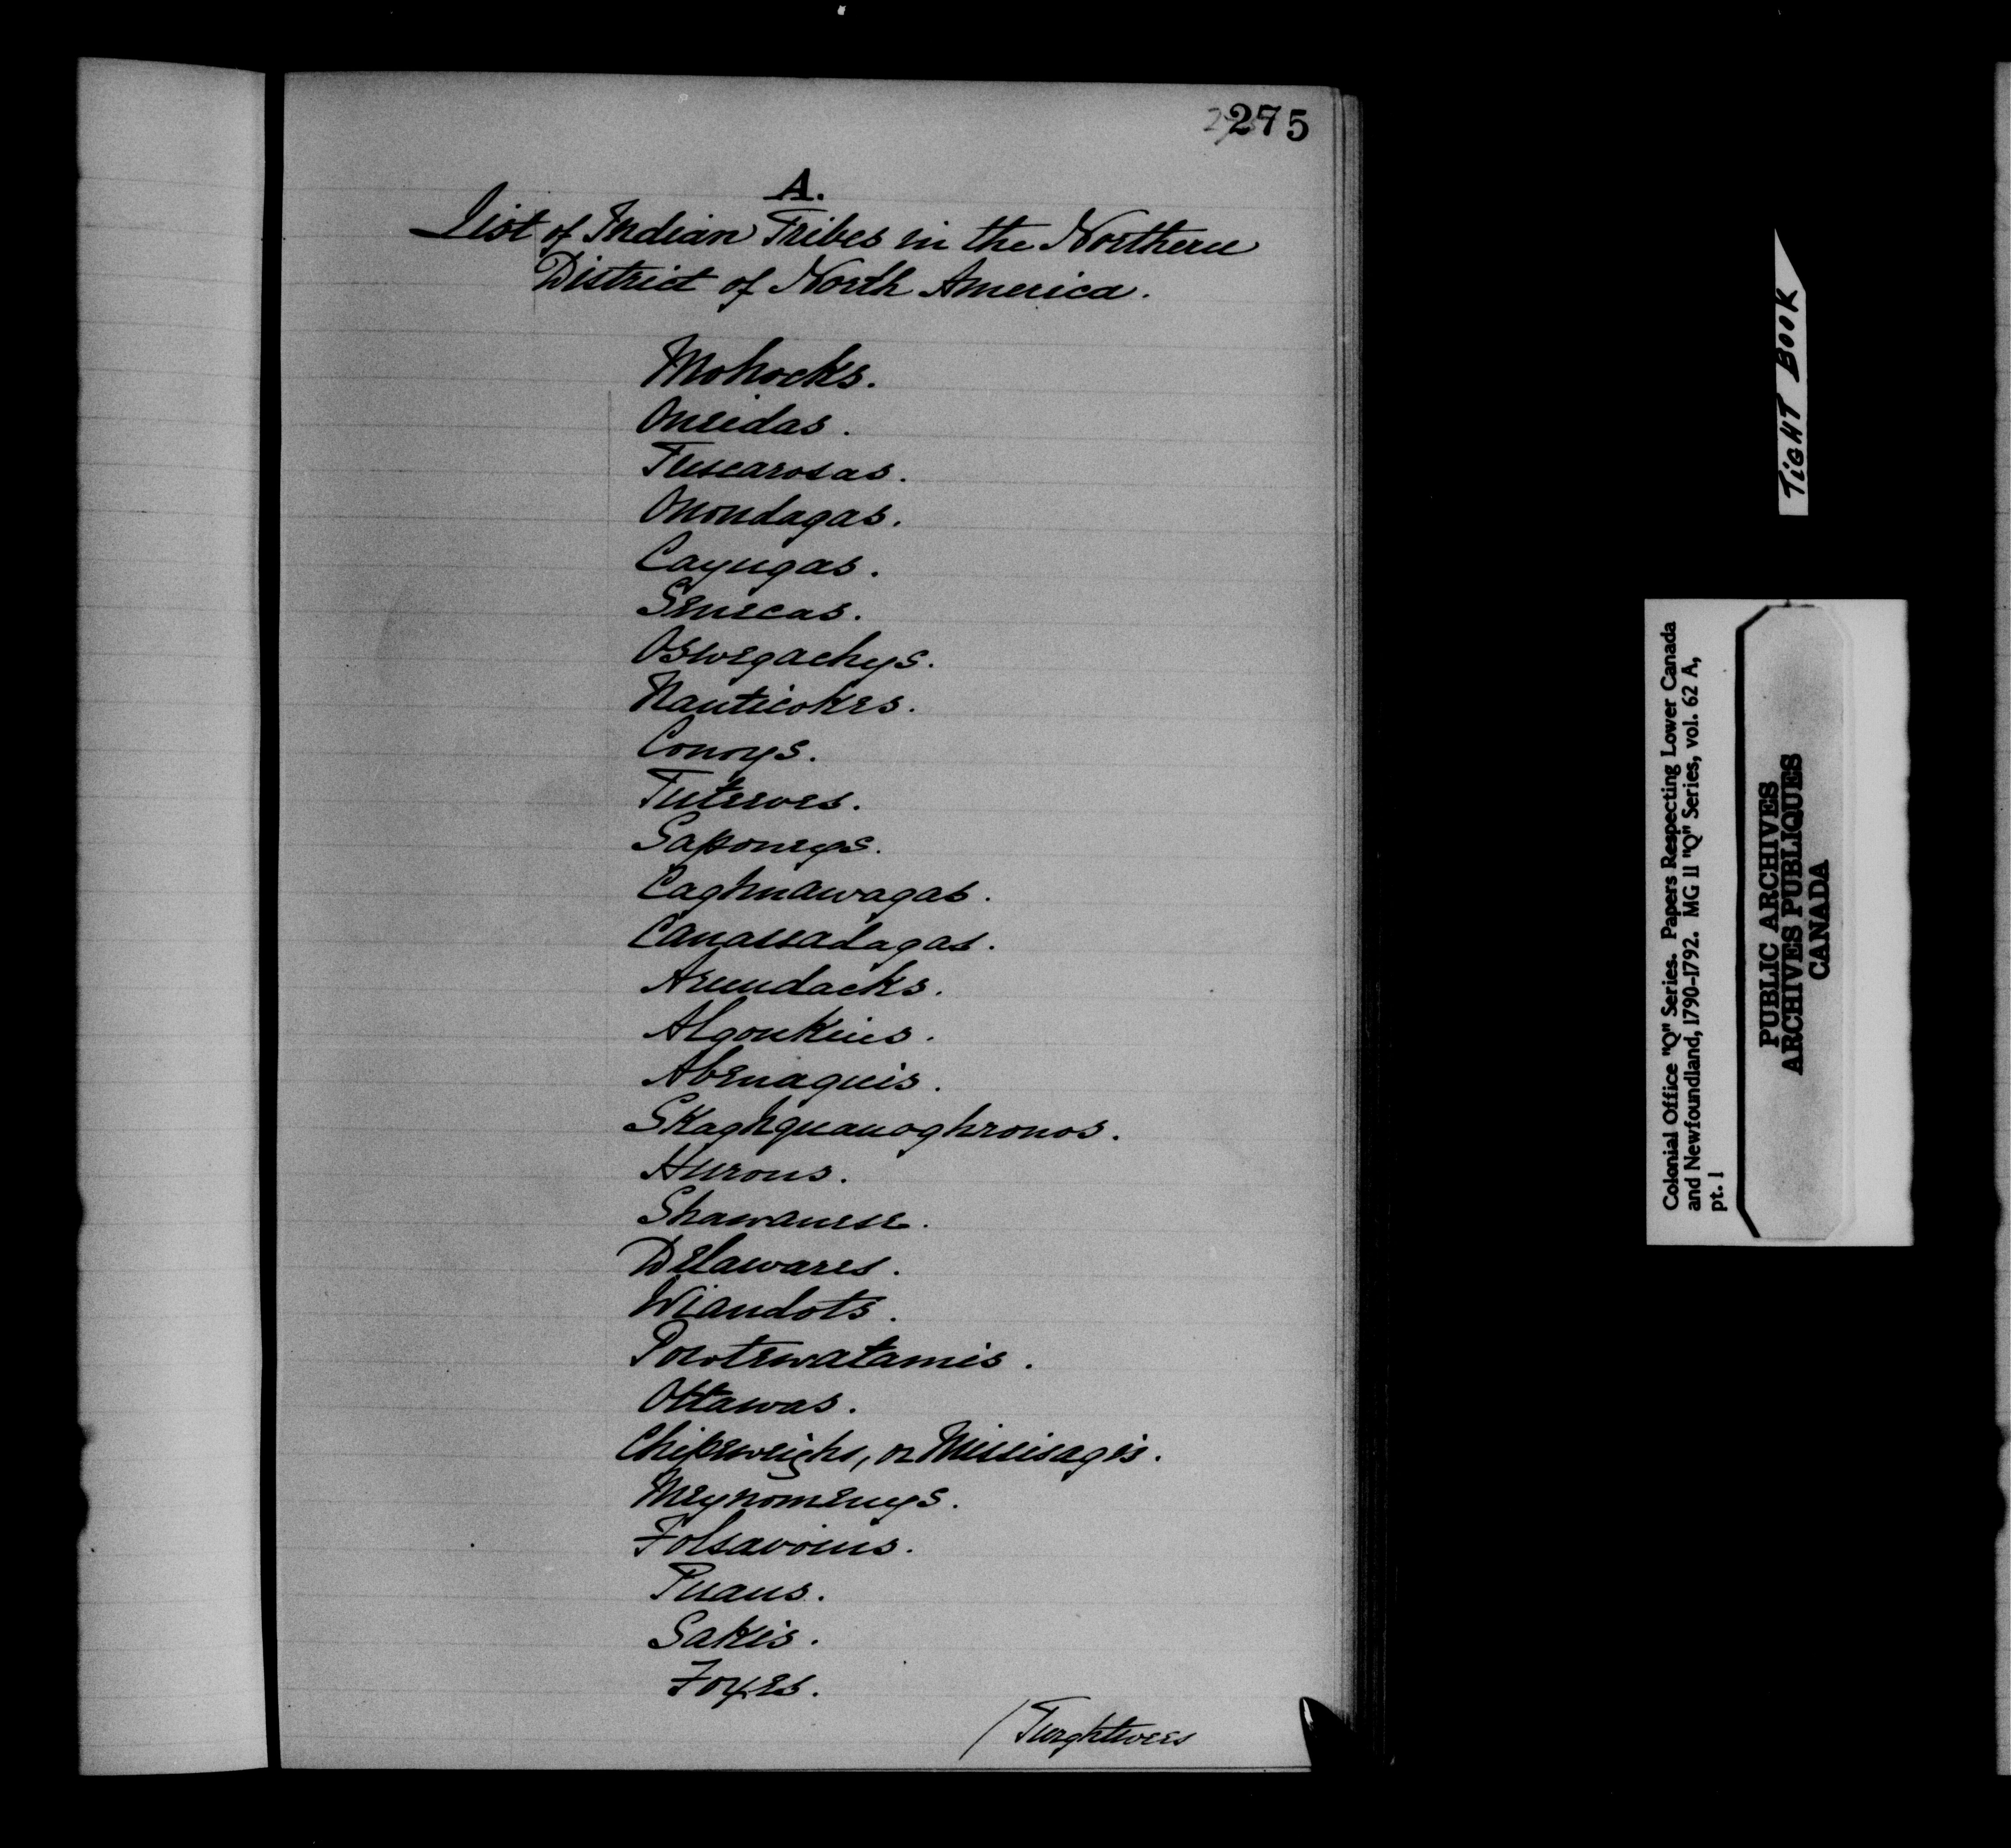 275
A.
List of Indian Tribes in the Northern
District of North America.
Mohocks.
Oneidas.
Tuscarosas.
Onondagas.
Cayugas.
Senecas.
Oswegachys.
Nanticokes.
Conoys.
Tuteeves.
Saponeys.
Caghnawagas.
Canassadagas.
Arundacks.
Algonkins.
Abenaquis.
Skaghquanoghronos.
Hurons.
Shawanese.
Delawares.
Wiandots.
Powtewatamis.
Ottawas.
Chipeweighs, or Missisagis.
Meynomenys.
Folsavoins.
Puans.
Sakis.
Foxes.
/Twightwees
TiGHT BOOK
Colonial Office "Q" Series. Papers Respecting Lower Canada
and Newfoundland, 1790-1792. MG 11 "Q" Series, vol. 62 A,
pt. 1
PUBLIC ARCHIVES
ARCHIVES PUBLIQUES
CANADA